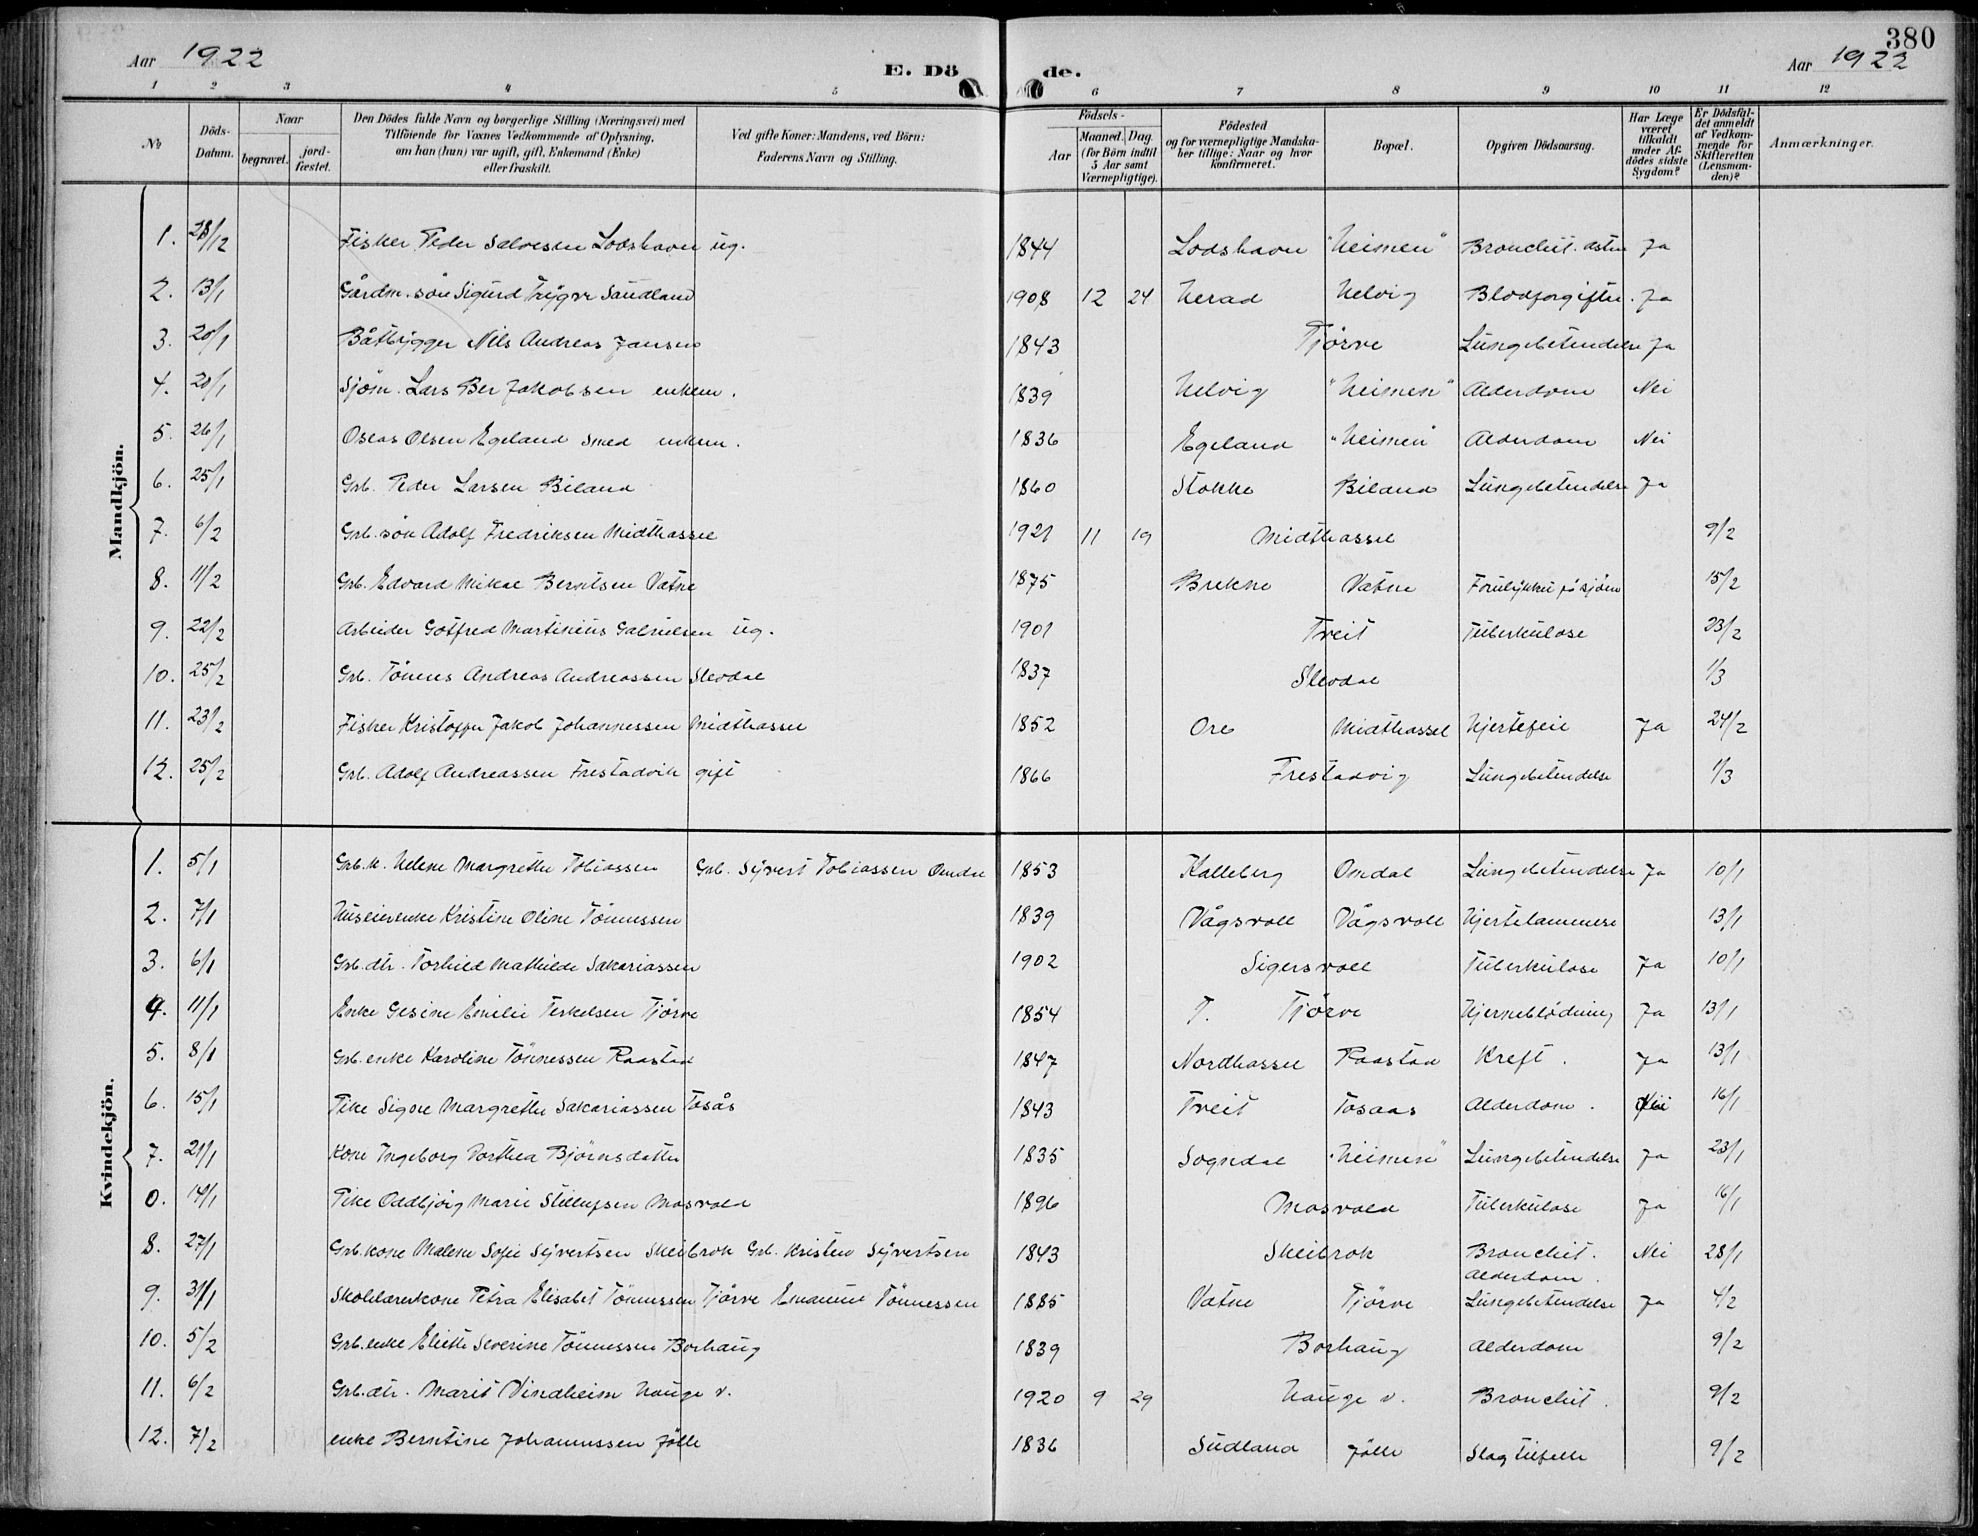 380
Aar 1922 E. Dö de. Aar 1922
1 2 3 4 5 6 7 8 9 10 11 12
№ Döds-Datum. Naar begravet. jord-fæstet. Den Dödes fulde Navn og borgerlige Stilling (Næringsvei) med Tilföiende for Voxnes Vedkommende af Oplysning, om han (hun) var ugift, gift, Enkemand (Enke) eller fraskilt. Ved gifte Koner: Mandens, ved Börn: Faderens Navn og Stilling. Födsels- Aar Maaned. Dag. (for Börn indtil 5 Aar samt Værnepligtige). Födested og for værnepligtige Mandskaber tillige: Naar og hvor konfirmeret. Bopæl. Opgiven Dödsaarsag. Har Læge været tilkaldt under Afdödes sidste Sygdom? Er Dödsfaldet anmeldt af Vedkommende for Skifteretten (Lensmanden)? Anmærkninger.
Mandkjön.
1. 28/12 Fisker Peder Salvesen Lodshavn ug. 1844 Lodshavn "Heimen" Bronchit. Ja
2. 13/1 Gårdm. sön Sigurd Trygve Saudland 1908 12 24 Herad Helvig Blodforgiftn. Ja
3. 20/1 Båtbygger Nils Andreas Jansen 1843 Tjörve Lungebetendelse Ja
4. 20/1 Sjöm. Lars Ber Jakobsen enkem. 1839 Helvig "Heimen" Alderdom Nei
5. 26/1 Oseas Olsen Egeland smed enkem. 1836 Egeland "Heimen" Alderdom Nei
6. 25/1 Grb. Peder Larsen Biland 1860 Stokke Biland Lungebetendelse Ja
7. 6/2 Grb. sön Adolf Fredriksen Midthassel 1921 11 19 Midthassel 9/2
8. 11/2 Grb. Edvard Mikal Berntsen Vatne 1875 Brekne Vatne Forulykket på sjöen 15/2
9. 22/2 Arbeider Gotfred Martinius Gabrielsen ug. 1901 Treit Tuberkulose 23/2
10. 25/2 Grb. Tönnes Andreas Andreassen Slevdal 1837 Slevdal 1/3
11. 23/2 Fisker Kristoffer Jakob Johannessen Midthassel 1852 Ore Midthassel Hjertefeil Ja 24/2
12. 25/2 Grb. Adolf Andreassen Frestadvik gift 1866 Frestadvig Lungebetendelse 1/3
Kvindekjön.
1. 5/1 Grb. k. Helene Margrethe Tobiassen Grb. Syvert Tobiassen Omdal 1853 Kalleberg Omdal Lungebetendelse Ja 10/1
2. 7/1 Huseierenke Kristine Oline Tönnessen 1839 Vågsvoll Vågsvoll Hjertelammelse 13/1
3. 6/1 Grb. dtr. Torhild Mathilde Sakariassen 1902 Sigersvoll Tuberkulose Ja 10/1
4. 11/1 Enke Gesine Emilie Terkelsen Tjörve 1854 T. Tjörve Hjerneblödning Ja 13/1
5. 8/1 Grb. enke Karoline Tönnessen Raastad 1847 Nordhassel Raastad Kreft. Ja 13/1
6. 15/1 Pike Signe Margrethe Sakariassen Tosås 1843 Treit Tosaas Alderdom. Nei 16/1
7. 21/1 Kone Ingeborg Dorthea Björnsdatter 1835 Sogndal "Heimen" Lungebetendelse Ja 23/1
0. 14/1 Pike Oddbjörg Marie Mosvold 1896 Mosvold Tuberkulose Ja 16/1
8. 27/1 Grb. kone Malene Sofie Syvertsen Skeibrok Grb. Kristen Syvertsen 1843 Skeibrok Bronchit. Alderdom. Nei 28/1
9. 31/1 Skolelærerkone Petra Elisabet Tönnessen Tjörve Emanuel Tönnessen 1885 Vatne Tjörve Lungebetendelse Ja 4/2
10. 5/2 Grb. enke Eliette Severine Tönnessen Borhaug 1839 Borhaug Alderdom 9/2
11. 6/2 Grb. dtr. Marit Vindheim Hauge v. 1920 9 29 Hauge v. Bronchit. 9/2
12. 7/2 enke Berntine Johannessen Jölle 1836 Sudland Jölle Slagtilfelle 9/2